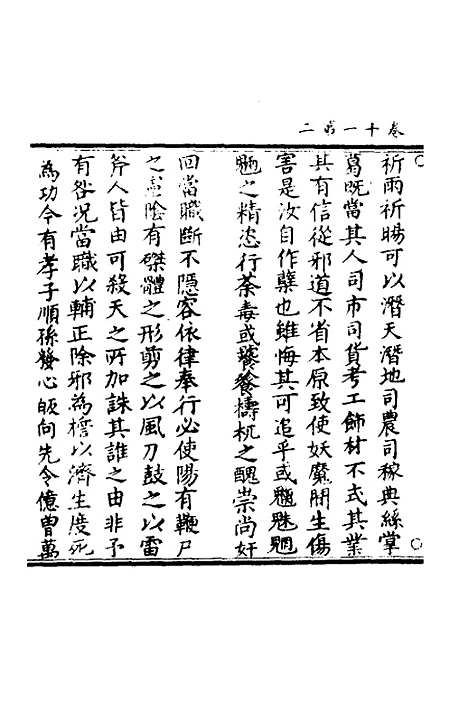 卷十一第二
祈雨祈暘可以潛天潛地司農司稼典絲掌
葛既當其人司市司貨考工飾材不忒其業
其有信從邪道不省本原致使妖魔開生傷
害是汝自作孽也雖悔其可追乎或魑魅魍
魎之精恣行荼毒或饕餮檮杌之醜崇尚奸
回當職斷不隱容依律奉行必使陽有鞭尸
之 陰有磔體之形剪之以風刀鼓之以雷
斧人皆由可殺天之所加誅其誰之由非予
有咎况當職以輔正除邪為 以濟生度死
為功今有孝子順孫發心皈向先令億曾萬